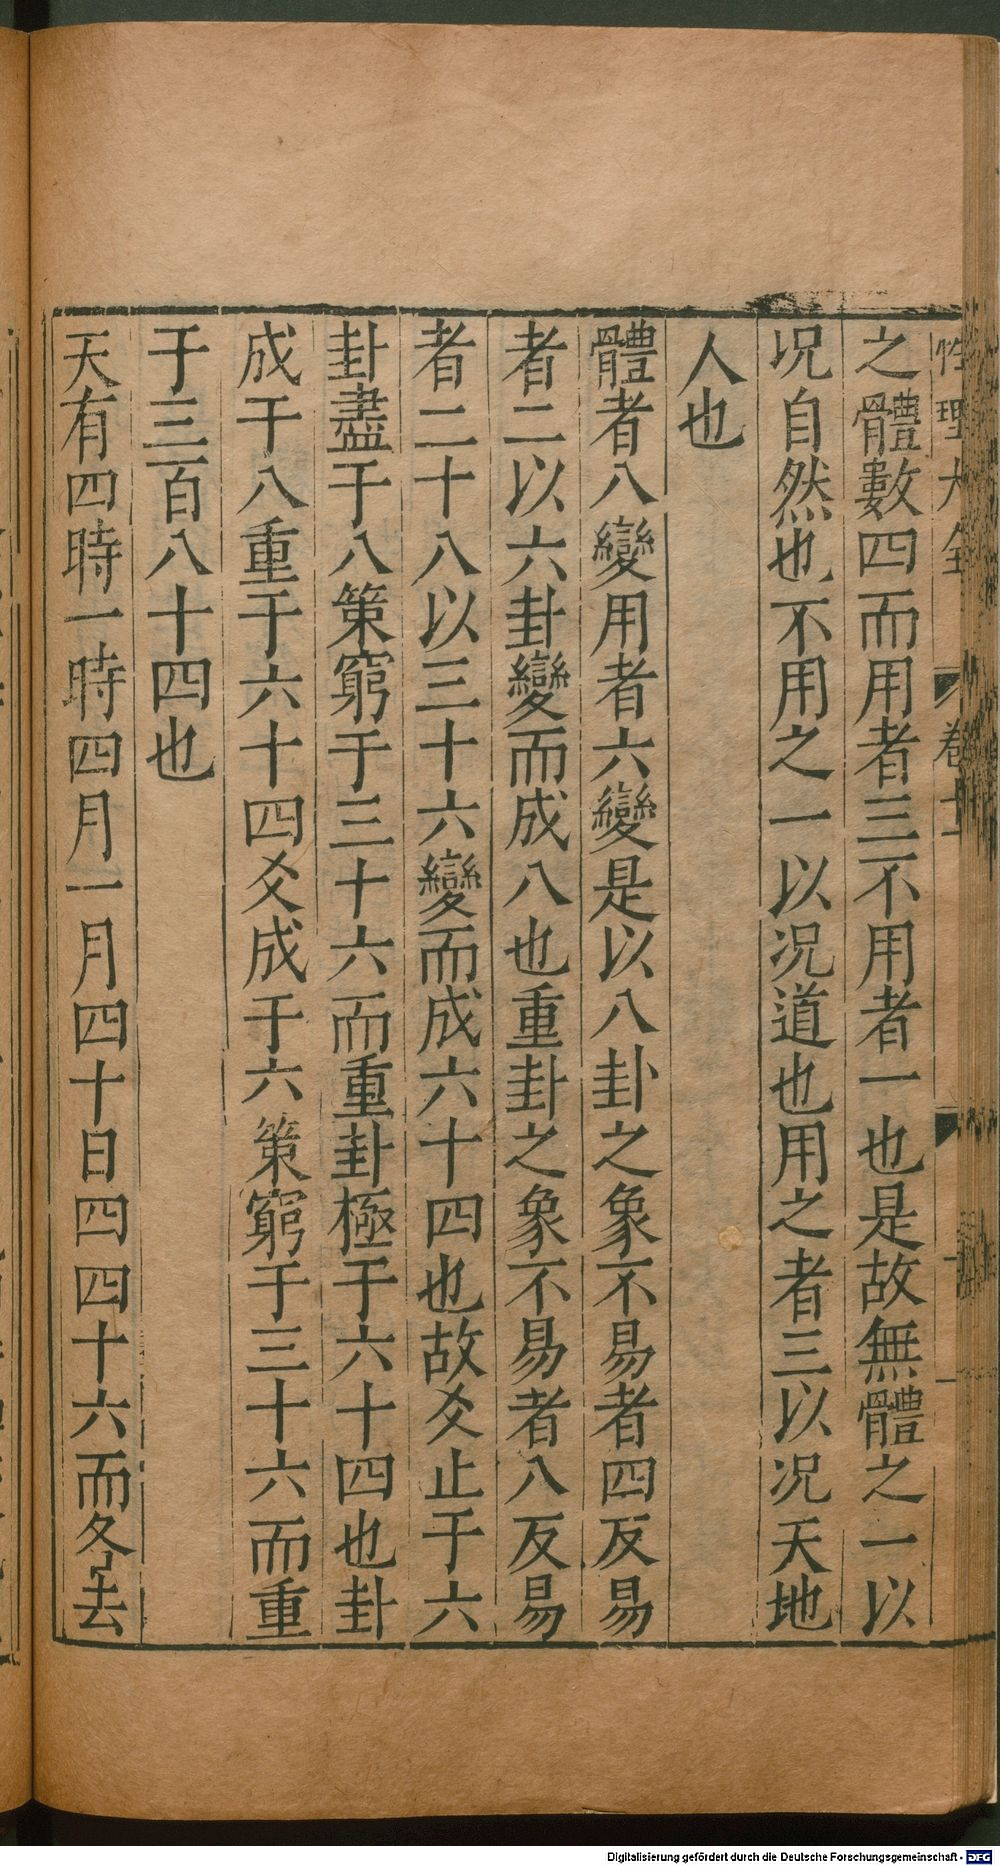 性理大全 卷十
之體數四而用者三不用者一也是故無體之一以
况自然也不用之一以况道也用之者三以况天地
人也
體者八變用者六變是以八卦之象不易者四反易
者二以六卦變而成八也重卦之象不易者八反易
者二十八以三十六變而成六十四也故爻止于六
卦盡于八策窮于三十六而重卦極于六十四也卦
成于八重于六十四爻成于六策窮于三十六而重
于三百八十四也
天有四時一時四月一月四十日四四十六而各去
Digitalisierung gefördert durch die Deutsche Forschungsgemeinschaft - DFG